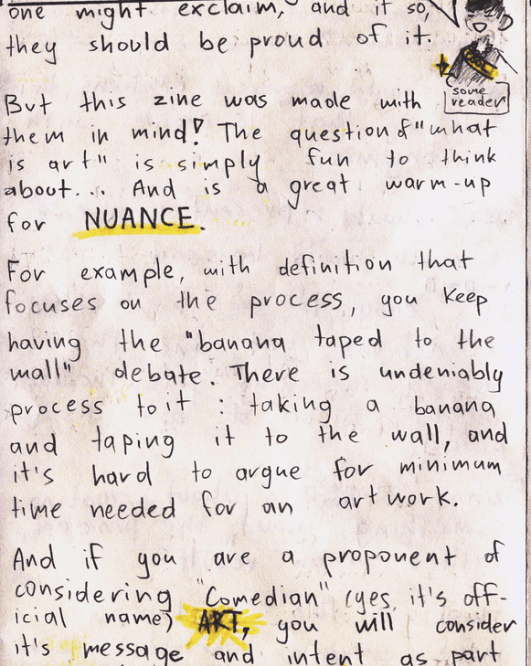 one might exclaim, and if so,
they should be proud of it.
some
reader
But this zine was made with
them in mind! The question of "what
is art" is simply fun to think
about... And is a great warm-up
for NUANCE.
For example, with definition that
focuses on the process, you keep
having the "banana taped to the
wall" debate. There is undeniably
process to it : taking a banana
and taping it to the wall, and
it's hard to argue for minimum
time needed for an artwork.
And if you are a proponent of
considering "Comedian" (yes, it's off-
icial name) ART, you will consider
it's message and intent as part